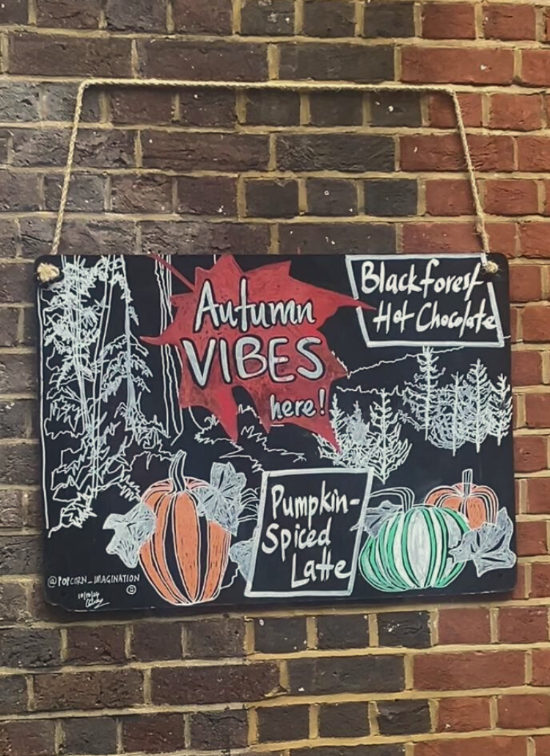 Autumn
VIBES
here!
Blackforest
Hot Chocolate
Pumpkin-
Spiced
Latte
@POPCORN_IMAGINATION